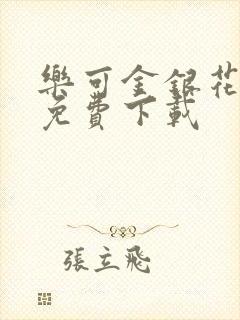 樂可金銀花
免費下載
張立飛